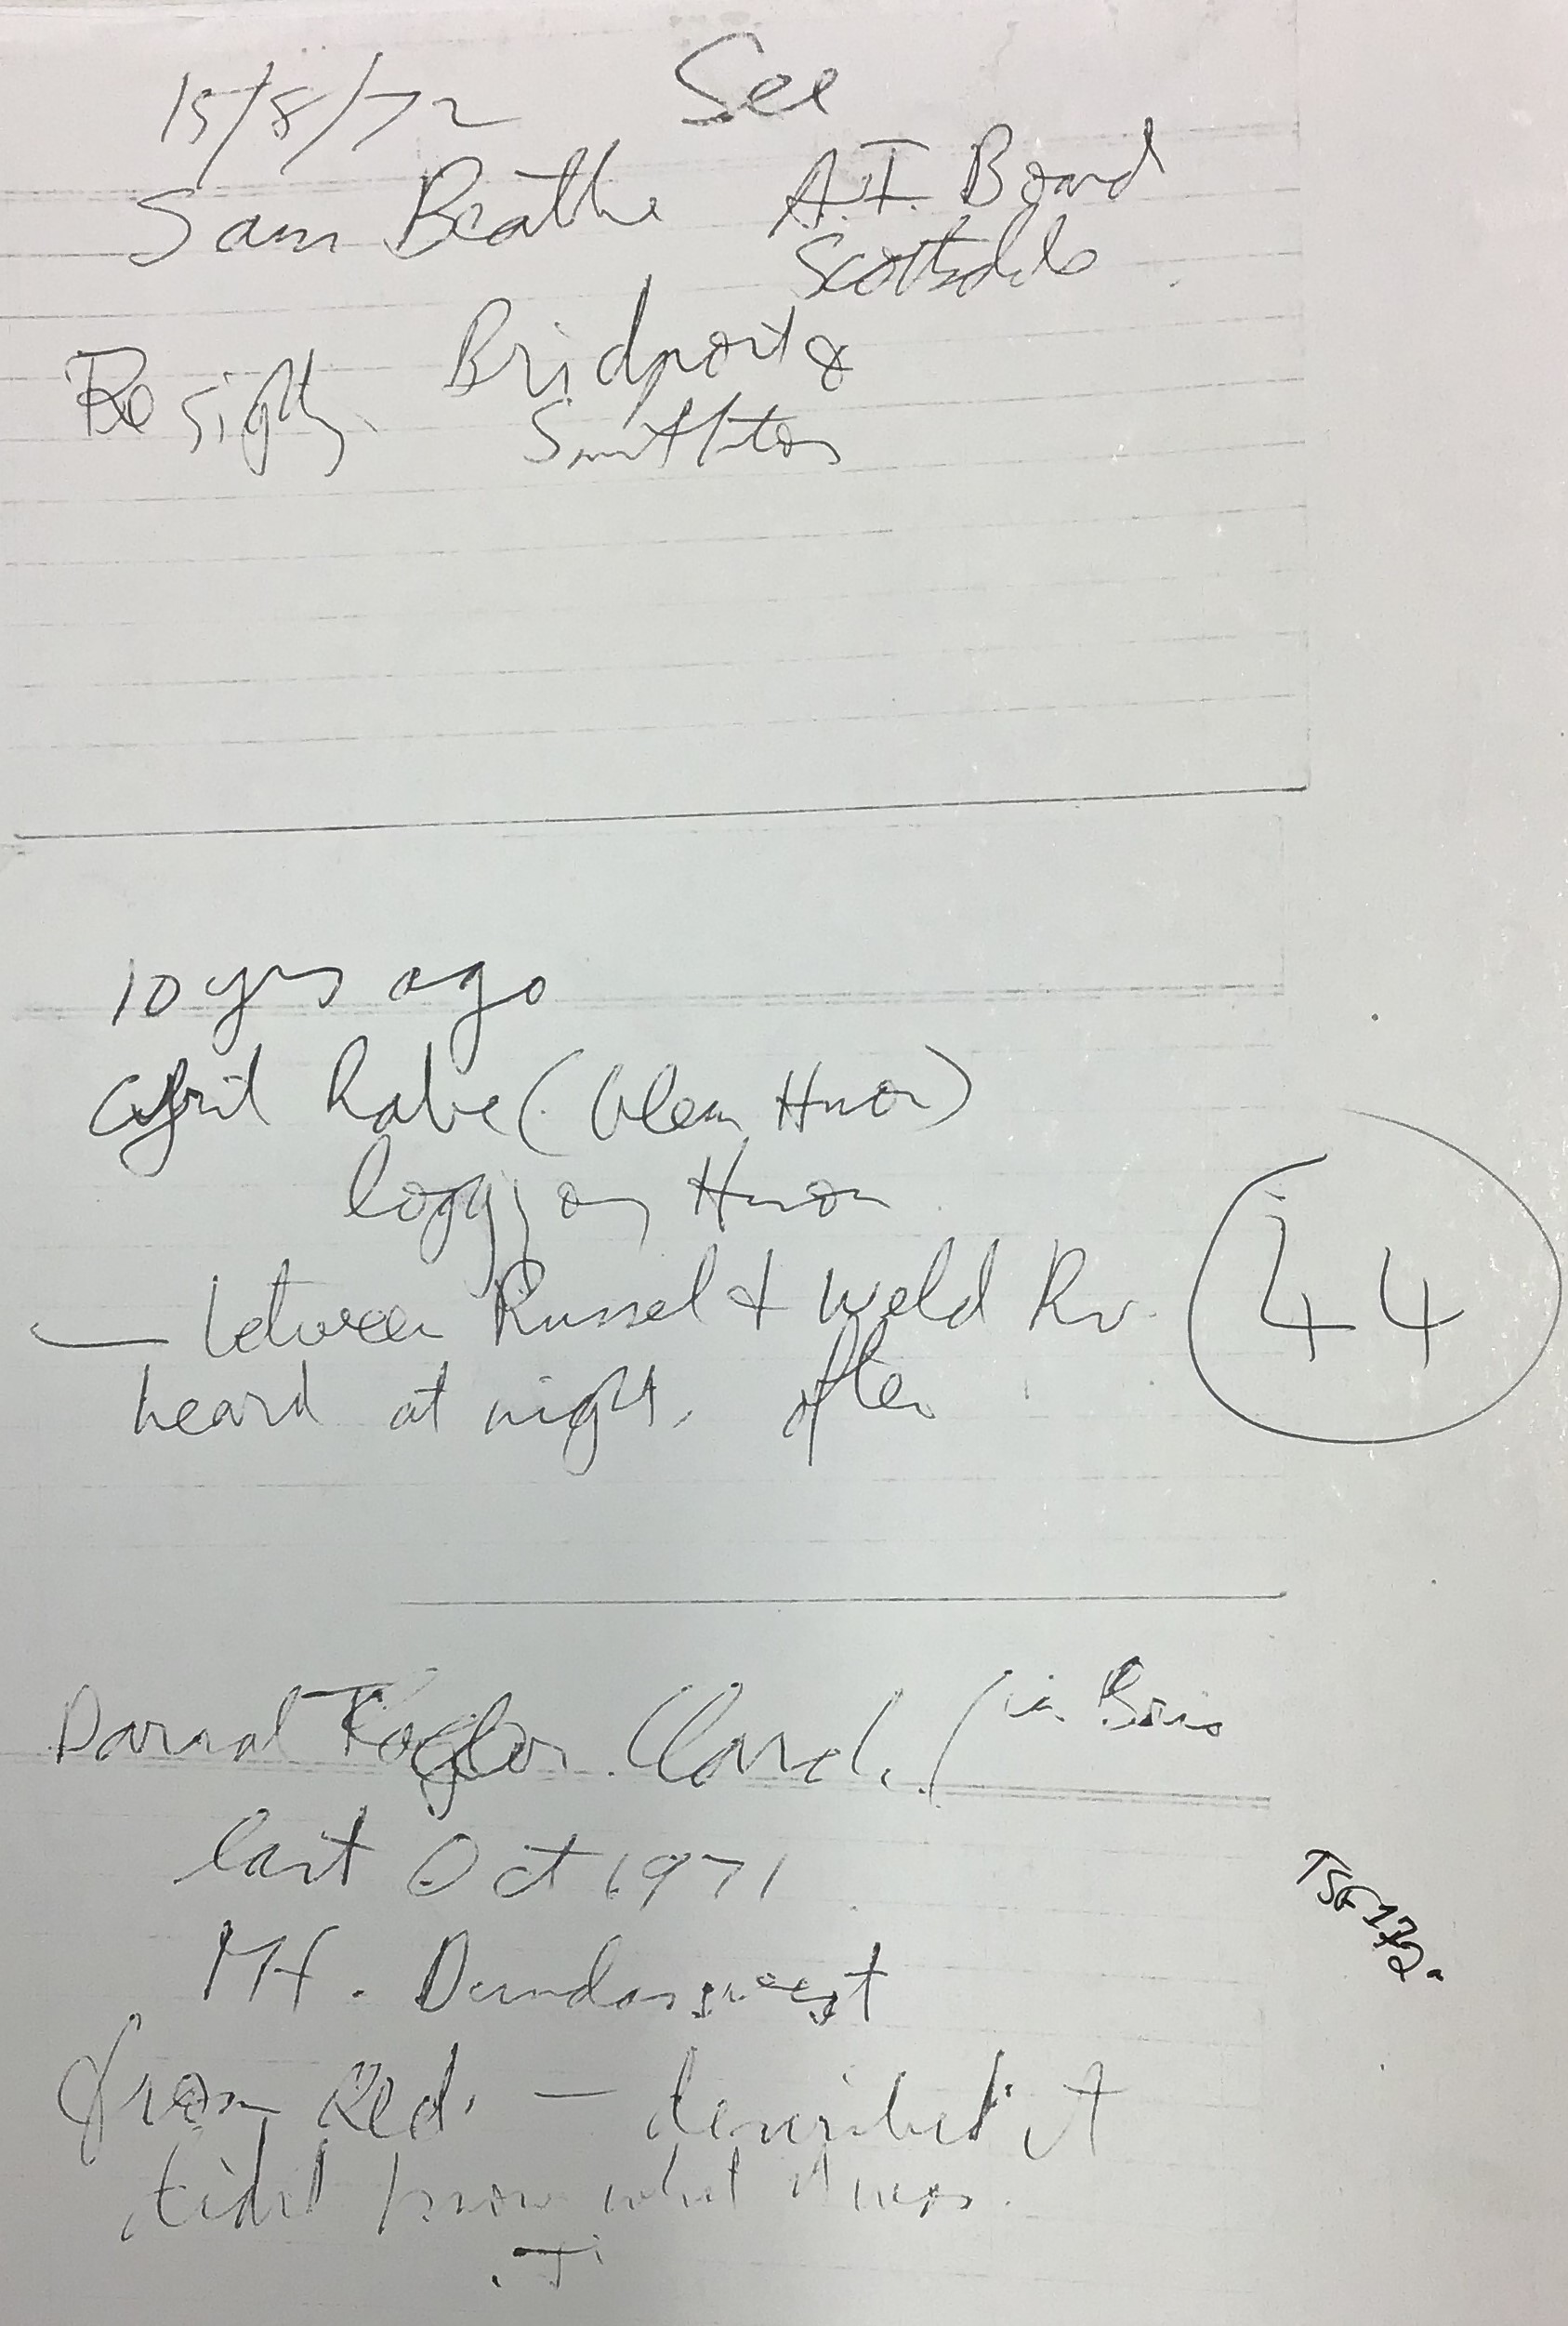 15/8/72 See
Sam Beattie A.I. Board
Scottsdale
Re sights Bridport &
Smithton
10 yrs ago
April Rabe (Glen Huon)
logging on Huon
— between Russel & Weld Rv.
heard at night, often
44
Darral Taylor Clare. / in Bris
last Oct 1971
Mt. Dundas west
from Zed. — described it
didnt know what it was.
TSF 172.